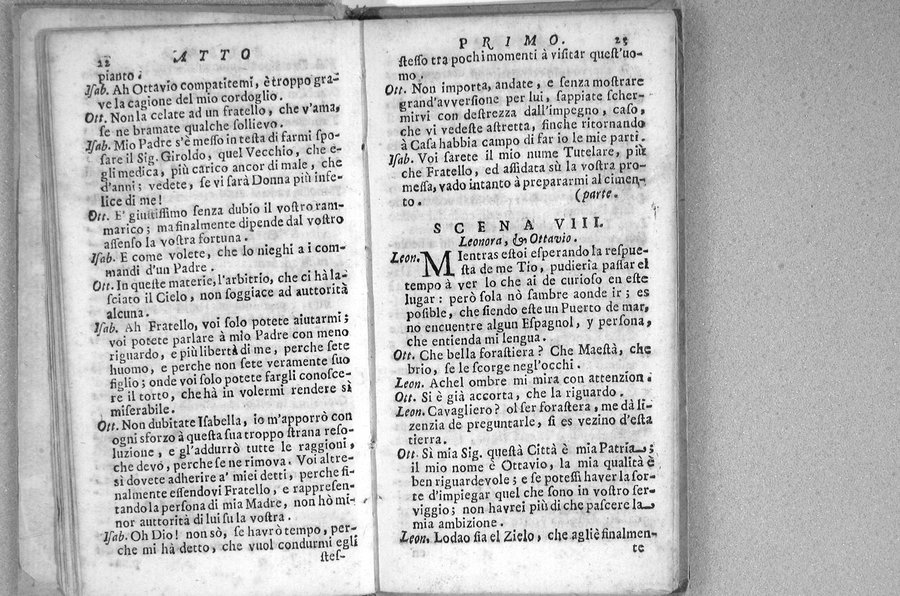 22 ATTO
pianto.
Isab. Ah Ottavio compatitemi, è troppo gra-
ve la cagione del mio cordoglio.
Ott. Non la celate ad un fratello, che v'ama,
se ne bramate qualche sollievo.
Isab. Mio Padre s'è messo in testa di farmi spo-
sare il Sig. Giroldo, quel Vecchio, che e-
gli medica, più carico ancor di male, che
d'anni; vedete, se vi sarà Donna più infe-
lice di me!
Ott. E' giustissimo senza dubio il vostro ram-
marico; ma finalmente dipende dal vostro
assenso la vostra fortuna.
Isab. E come volete, che Io nieghi a i com-
mandi d'un Padre.
Ott. In queste materie, l'arbitrio, che ci hà la-
sciato il Cielo, non soggiace ad auttorità
alcuna.
Isab. Ah Fratello, voi solo potete aiutarmi;
voi potete parlare à mio Padre con meno
riguardo, e più libertà di me, perche sete
huomo, e perche non sete veramente suo
figlio; onde voi solo potete fargli conosce-
re il torto, che hà in volermi rendere sì
miserabile.
Ott. Non dubitate Isabella, io m'apporrò con
ogni sforzo à questa sua troppo strana reso-
luzione, e gl'addurrò tutte le raggioni,
che devo, perche se ne rimova. Voi altre-
sì dovete adherire a' miei detti, perche fi-
nalmente essendovi Fratello, e rappresen-
tando la persona di mia Madre, non hò mi-
nor auttorità di lui su la vostra.
Isab. Oh Dio! non sò, se havrò tempo, per-
che mi hà detto, che vuol condurmi egli
stes-
PRIMO. 23
stesso tra pochi momenti à visitar quest'uo-
mo.
Ott. Non importa, andate, e senza mostrare
grand'avversione per lui, sappiate scher-
mirvi con destrezza dall'impegno, caso,
che vi vedeste astretta, finche ritornando
à Casa habbia campo di far io le mie parti.
Isab. Voi sarete il mio nume Tutelare, più
che Fratello, ed affidata sù la vostra pro-
messa, vado intanto à prepararmi al cimen-
to. (parte.
SCENA VIII.
Leonora, & Ottavio.
Leon. MIentras estoi esperando la respue-
sta de me Tio, pudieria passar el
tempo à ver lo che ai de curioso en este
lugar: però sola nò sambre aonde ir; es
posible, che siendo este un Puerto de mar,
no encuentre algun Espagnol, y persona,
che entienda mi lengua.
Ott. Che bella forastiera? Che Maestà, che
brio, se le scorge negl'occhi.
Leon. Achel ombre mi mira con attenzion.
Ott. Si è già accorta, che la riguardo.
Leon. Cavagliero? ol ser forastera, me dà li-
zenzia de preguntarle, si es vezino d'esta
tierra.
Ott. Sì mia Sig. questà Città è mia Patria;
il mio nome è Ottavio, la mia qualità è
ben riguardevole; e se potessi haver la sor-
te d'impiegar quel che sono in vostro ser-
viggio; non havrei più di che pascere la
mia ambizione.
Leon. Lodao sia el Zielo, che agliè finalmen-
te